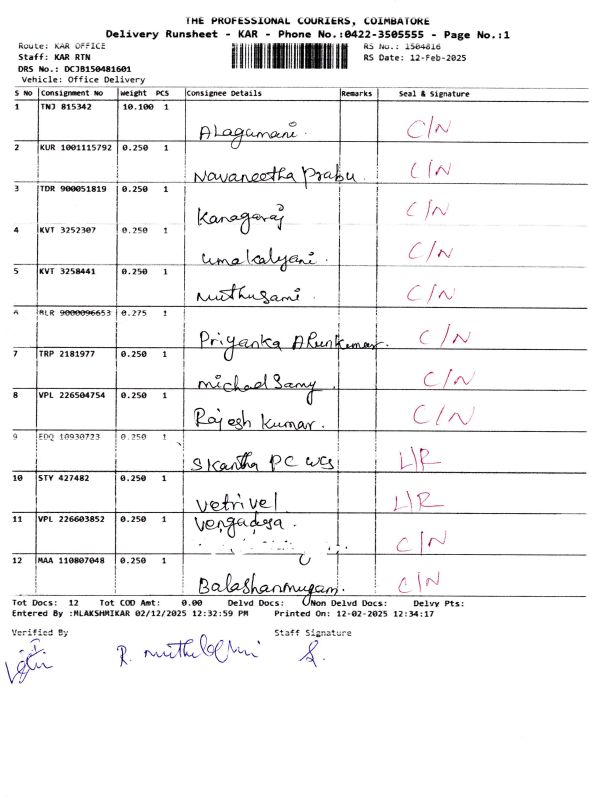 THE PROFESSIONAL COURIERS, COIMBATORE
Delivery Runsheet - KAR - Phone No.:0422-3505555 - Page No.:1
Route: KAR OFFICE RS No.: 1504816
Staff: KAR RTN RS Date: 12-Feb-2025
DRS No.: DCJB150481601
Vehicle: Office Delivery
S No Consignment No Weight PCS Consignee Details Remarks Seal & Signature
1 TNJ 815342 10.100 1
Alagumani. C/N
2 KUR 1001115792 0.250 1
Navaneetha Prabu. C/N
3 TDR 900051819 0.250 1
Kanagaraj C/N
4 KVT 3252307 0.250 1
Umakalyani. C/N
5 KVT 3258441 0.250 1
Muthusami. C/N
6 BLR 9000096653 0.275 1
Priyanka Arunkumar. C/N
7 TRP 2181977 0.250 1
Michael Samy. C/N
8 VPL 226504754 0.250 1
Rajesh Kumar. C/N
9 EDQ 10930723 0.250 1
Skantha PC L/R
10 STY 427482 0.250 1
Vetrivel L/R
11 VPL 226603852 0.250 1
Vengadesa.
C/N
12 MAA 110807048 0.250 1
Balashanmugam. C/N
Tot Docs: 12 Tot COD Amt: 0.00 Delvd Docs: Non Delvd Docs: Delvy Pts:
Entered By :MLAKSHMIKAR 02/12/2025 12:32:59 PM Printed On: 12-02-2025 12:34:17
Verified By Staff Signature